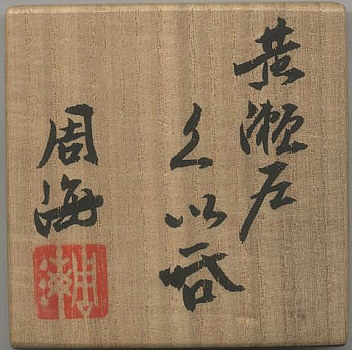 黄瀬戸
ぐい呑
周海
周海